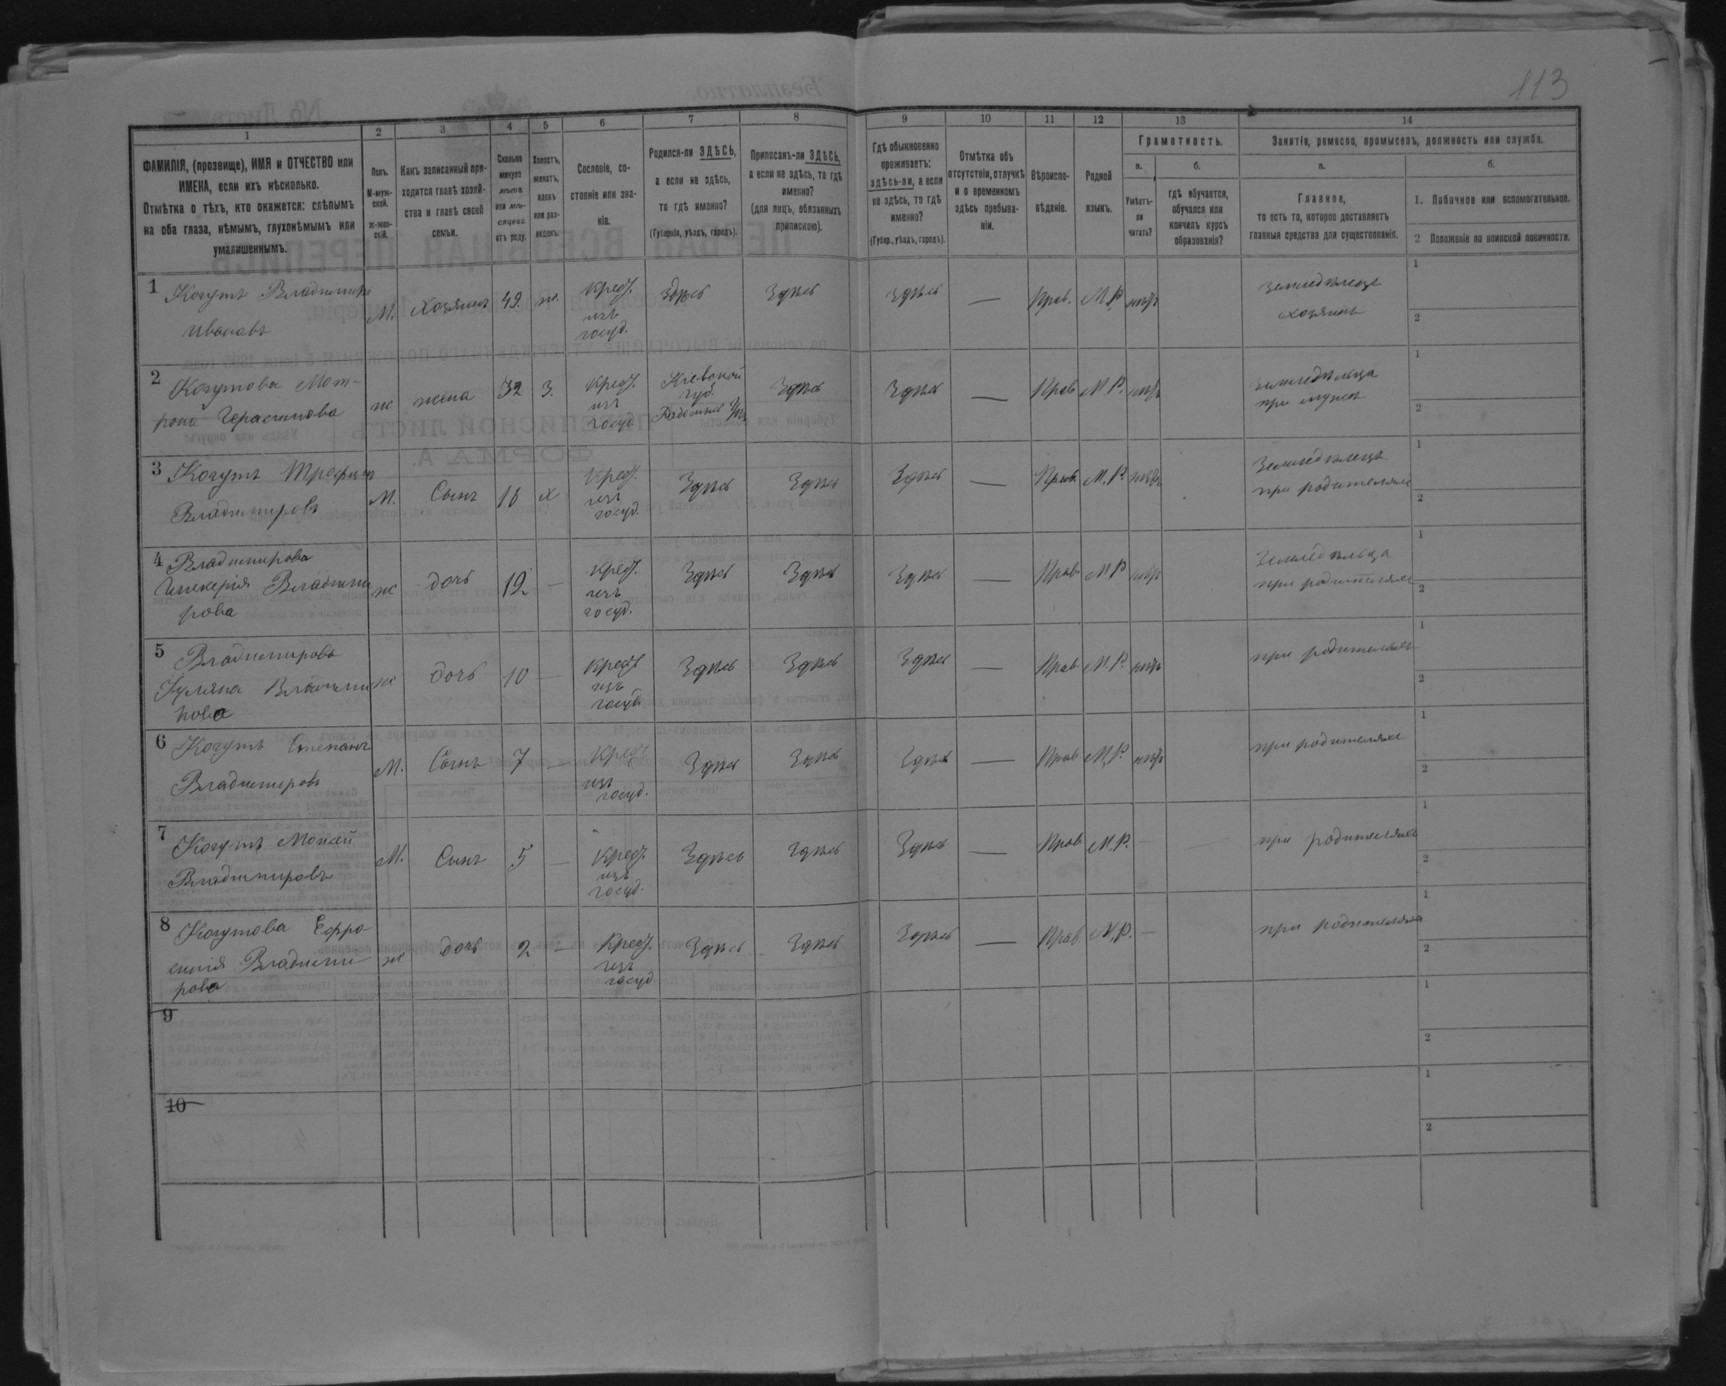 113
1 2 3 4 5 6 7 8 9 10 11 12 13 14
ФАМИЛІЯ, (прозвище), ИМЯ и ОТЧЕСТВО или
ИМЕНА, если ихъ нѣсколько.
Отмѣтка о тѣхъ, кто окажется: слѣпымъ
на оба глаза, нѣмымъ, глухонѣмымъ или
умалишеннымъ.
Полъ.
М-муж-
ской.
Ж-жен-
скій.
Какъ записанный при-
ходится главѣ хозяй-
ства и главѣ своей
семьи.
Сколько
минуло
лѣтъ
или мѣ-
сяцевъ
отъ роду.
Холостъ,
женатъ,
вдовъ
или раз-
веденъ.
Сословіе, со-
стояніе или зва-
ніе.
Родился-ли ЗДѢСЬ,
а если не здѣсь,
то гдѣ именно?
(Губернія, уѣздъ, городъ).
Приписанъ-ли ЗДѢСЬ,
а если не здѣсь, то гдѣ
именно?
(для лицъ, обязанныхъ
припискою).
Гдѣ обыкновенно
проживаетъ:
здѣсь-ли, а если
не здѣсь, то гдѣ
именно?
(Губер., уѣздъ, городъ).
Отмѣтка объ
отсутствіи, отлучкѣ
и о временномъ
здѣсь пребыва-
ніи.
Вѣроиспо-
вѣданіе.
Родной
языкъ.
Грамотность.
а.
Умѣетъ-
ли
читать?
б.
гдѣ обучается,
обучался или
кончилъ курсъ
образованія?
Занятіе, ремесло, промыселъ, должность или служба.
а.
Главное,
то есть то, которое доставляетъ
главныя средства для существованія.
б.
1. Побочное или вспомогательное.
2 Положеніе по воинской повинности.
1 Когутъ Владимиръ
Ивановъ
М. Хозяинъ 42 ж. Крест.
изъ
госуд.
Здѣсь Здѣсь Здѣсь — Прав. М.Р. нѣтъ
земледѣлецъ
хозяинъ
1
2
2 Когутова Мот-
рона Герасимова
ж жена 32 З. Крест.
изъ
госуд
Кіевской
губ.
Здѣсь Здѣсь — Прав М.Р. нѣтъ
земледѣльца
при мужѣ
1
2
3 Когутъ Трофимъ
Владимировъ
М. Сынъ 16 х Крест.
изъ
госуд.
Здѣсь Здѣсь Здѣсь — Прав. М.Р. нѣтъ
Земледѣлецъ
при родителяхъ
1
2
4 Владимирова
Гликерія Владими
рова
ж дочь 12 — Крест.
изъ
госуд.
Здѣсь Здѣсь Здѣсь — Прав М.Р. нѣтъ
Земледѣльца
при родителяхъ
1
2
5 Владимирова
Іуляна Владими
рова
ж дочь 10 — Крест
изъ
госуд
Здѣсь Здѣсь Здѣсь — Прав М.Р. нѣтъ
при родителяхъ
1
2
6 Когутъ Степанъ
Владимировъ
М. Сынъ 7 — Крест
изъ
госуд.
Здѣсь Здѣсь Здѣсь — Прав М.Р. нѣтъ
при родителяхъ
1
2
7 Когутъ Мокей
Владимировъ
М. Сынъ 5 — Крест.
изъ
госуд.
Здѣсь Здѣсь Здѣсь — Прав М.Р. —
при родителяхъ
1
2
8 Когутова Ефро-
синія Владими
рова
ж дочь 2 — Крест.
изъ
госуд
Здѣсь Здѣсь Здѣсь — Прав М.Р. —
при родителяхъ
1
2
9
1
2
10
1
2